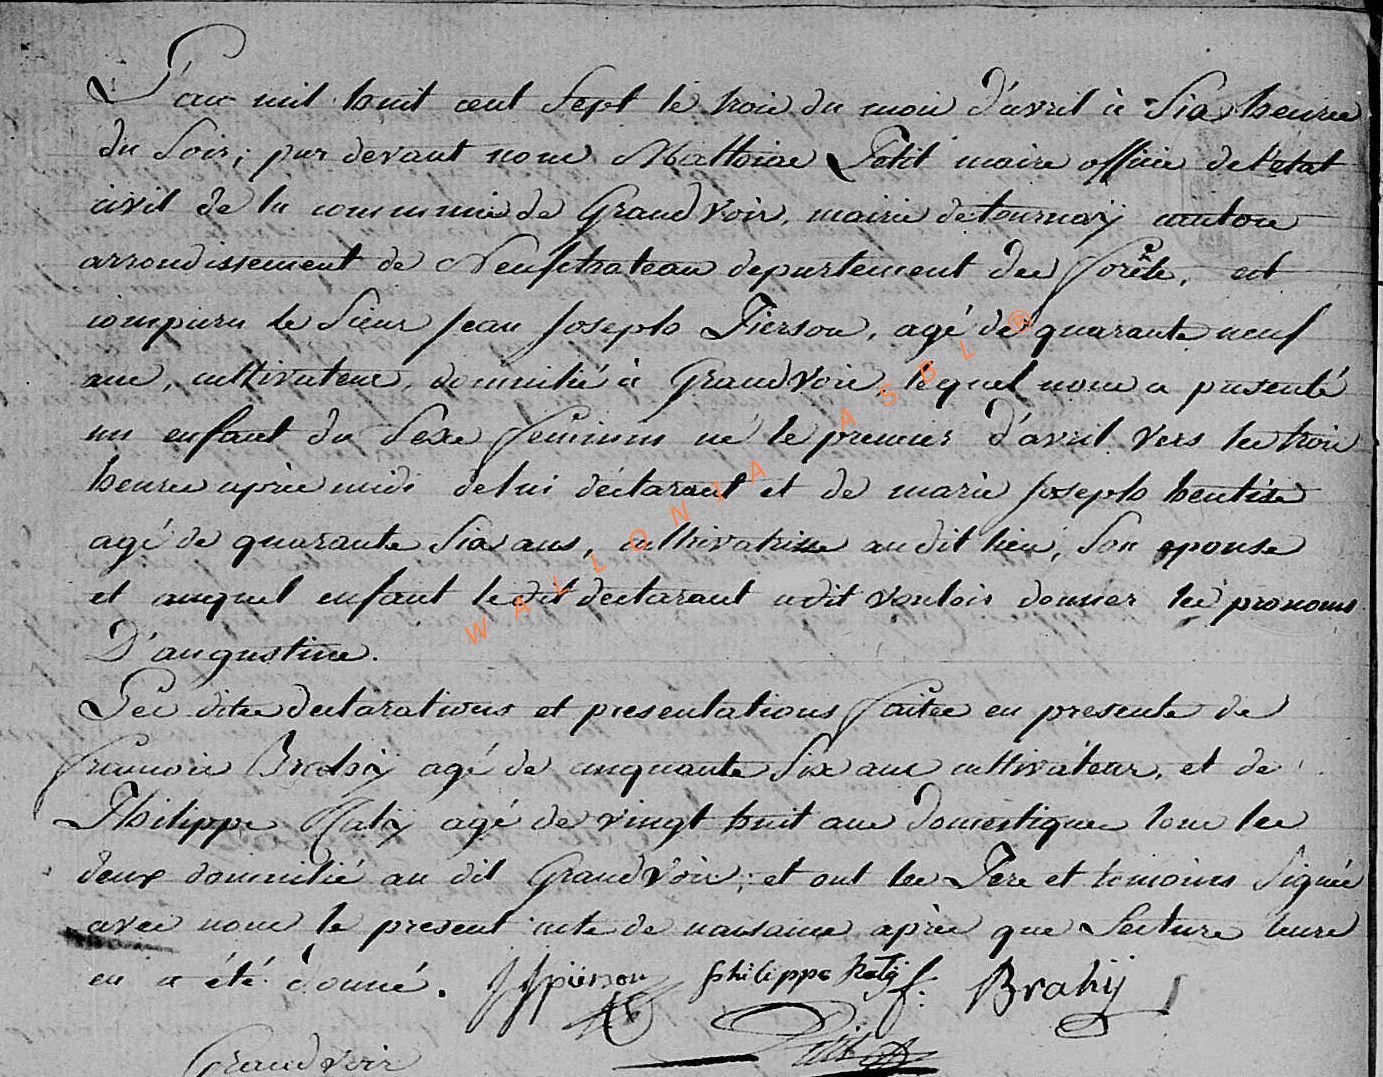 L'an mil huit cent Sept le trois du mois d'avril à Six heures
du Soir; par devant nous Mathias Petit maire officier de l'etat
civil de la commune de Grandvoir, mairie de tournay canton
arrondissement de Neufchateau departement des Forêts, est
comparu le Sieur Jean Joseph Pierson, agé de quarante neuf
ans, cultivateur, domicilié à Grandvoir, lequel nous a presenté
un enfant du Sexe feminin né le premier d'avril vers les trois
heures après midi de lui déclarant et de marie Joseph
agé de quarante Six ans, cultivatrice au dit lieu, Son epouse
et auquel enfant le dit declarant a dit vouloir donner les prenoms
D'augustine.
Les dites declarations et presentations faites en presente de
francois Brahÿ agé de cinquante Six ans cultivateur, et de
Philippe agé de vingt huit ans domestique tous les
deux domicilié au dit Grandvoir; et ont les Pere et temoins Signés
avec nous le present acte de naissance après que Lecture leurs
en a été donné. JJpierson philippe f: Brahij
Petit
Grandvoir
WALLONIA ASBL ®